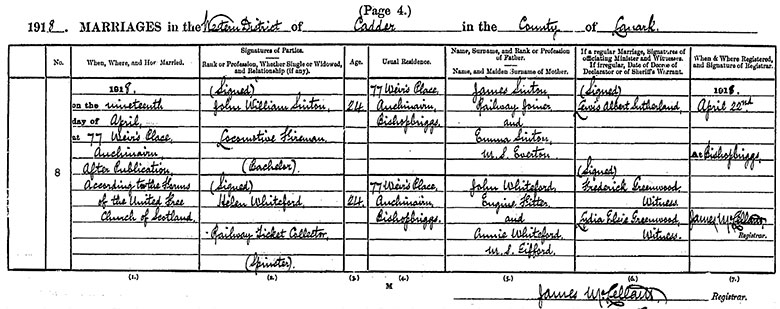 (Page 4.)
1918. MARRIAGES in the Western District of Cadder in the County of Lanark
No.
When, Where, and How Married.
Signatures of Parties.
Rank or Profession, Whether Single or Widowed, and Relationship (if any).
Age.
Usual Residence.
Name, Surname, and Rank or Profession of Father.
Name, and Maiden Surname of Mother.
If a regular Marriage, Signatures of officiating Minister and Witnesses.
If irregular, Date of Decree of Declarator or of Sheriff's Warrant.
When & Where Registered, and Signature of Registrar.
8
1918.
on the nineteenth
day of April,
at 77 Weir's Place,
Auchinairn
After Publication,
According to the Forms
of the United Free
Church of Scotland.
(Signed)
John William Sinton
Locomotive Fireman
(Bachelor)
(Signed)
Helen Whiteford
Railway Ticket Collector,
(Spinster)
24
24
77 Weir's Place,
Auchinairn
Bishopbriggs
77 Weir's Place,
Auchinairn
Bishopbriggs.
James Sinton
Railway Joiner
and
Emma Sinton
M.S. Everton
John Whiteford.
Engine Fitter
and
Annie Whiteford
M.S. Eifford.
(Signed)
Lewis Albert Sutherland,
(Signed)
Frederick Greenwood.
Witness
Lydia Elsie Greenwood,
Witness.
1918.
April 22nd
At Bishopbriggs
James McLellan
Registrar.
(1.) (2.) (3.) (4.) (5.) (6.) (7.)
M
James McLellan Registrar.